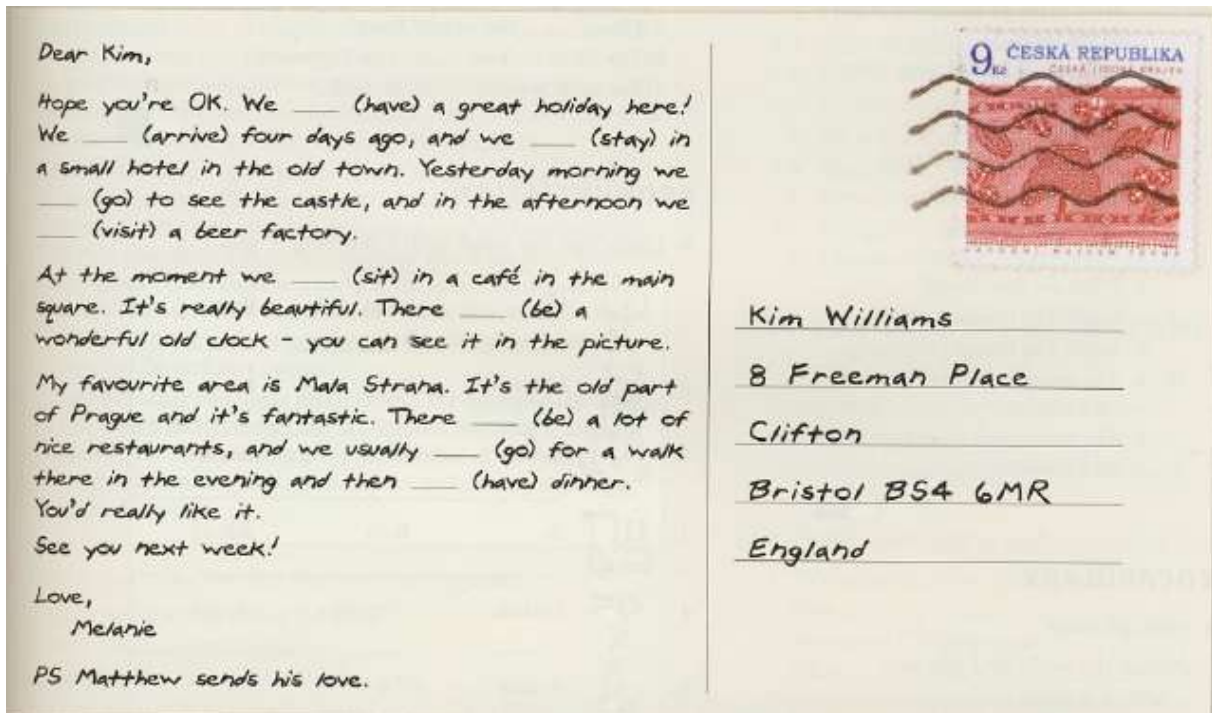 Dear Kim,
Hope you're OK. We ___ (have) a great holiday here!
We ___ (arrive) four days ago, and we ___ (stay) in
a small hotel in the old town. Yesterday morning we
___ (go) to see the castle, and in the afternoon we
___ (visit) a beer factory.
At the moment we ___ (sit) in a café in the main
square. It's really beautiful. There ___ (be) a
wonderful old clock – you can see it in the picture.
My favourite area is Mala Strana. It's the old part
of Prague and it's fantastic. There ___ (be) a lot of
nice restaurants, and we usually ___ (go) for a walk
there in the evening and then ___ (have) dinner.
You'd really like it.
See you next week!
Love,
Melanie
PS Matthew sends his love.
9 Kč ČESKÁ REPUBLIKA
Kim Williams
8 Freeman Place
Clifton
Bristol BS4 6MR
England